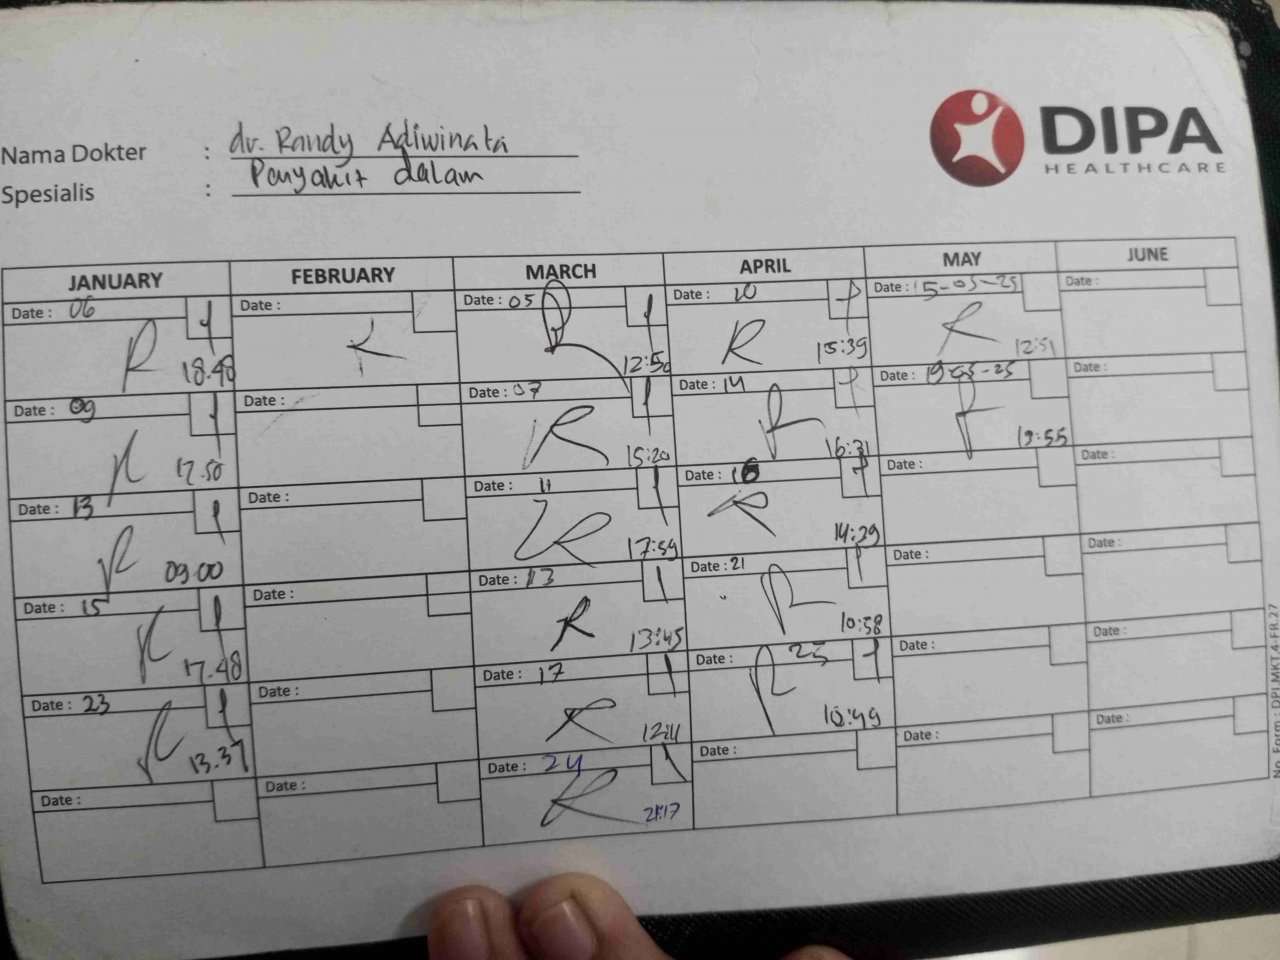 DIPA
HEALTHCARE
Nama Dokter : dr. Randy Adiwinata
Spesialis : Penyakit dalam
JANUARY FEBRUARY MARCH APRIL MAY JUNE
Date : 06 Date : Date : 05 Date : 10 Date : 15-05-25 Date :
18.48 12:50 15:39 12:51
Date : 09 Date : Date : 07 Date : 14 Date : 19-05-25 Date :
17.50 15:20 16:31 19:55
Date : 13 Date : Date : 11 Date : 16 Date : Date :
09.00 17:59 14:29
Date : 15 Date : Date : 13 Date : 21 Date : Date :
17.48 13:45 10:58
Date : 23 Date : Date : 17 Date : 25 Date : Date :
13.37 12:11 10:49
Date : Date : Date : 24 Date : Date : Date :
21:17